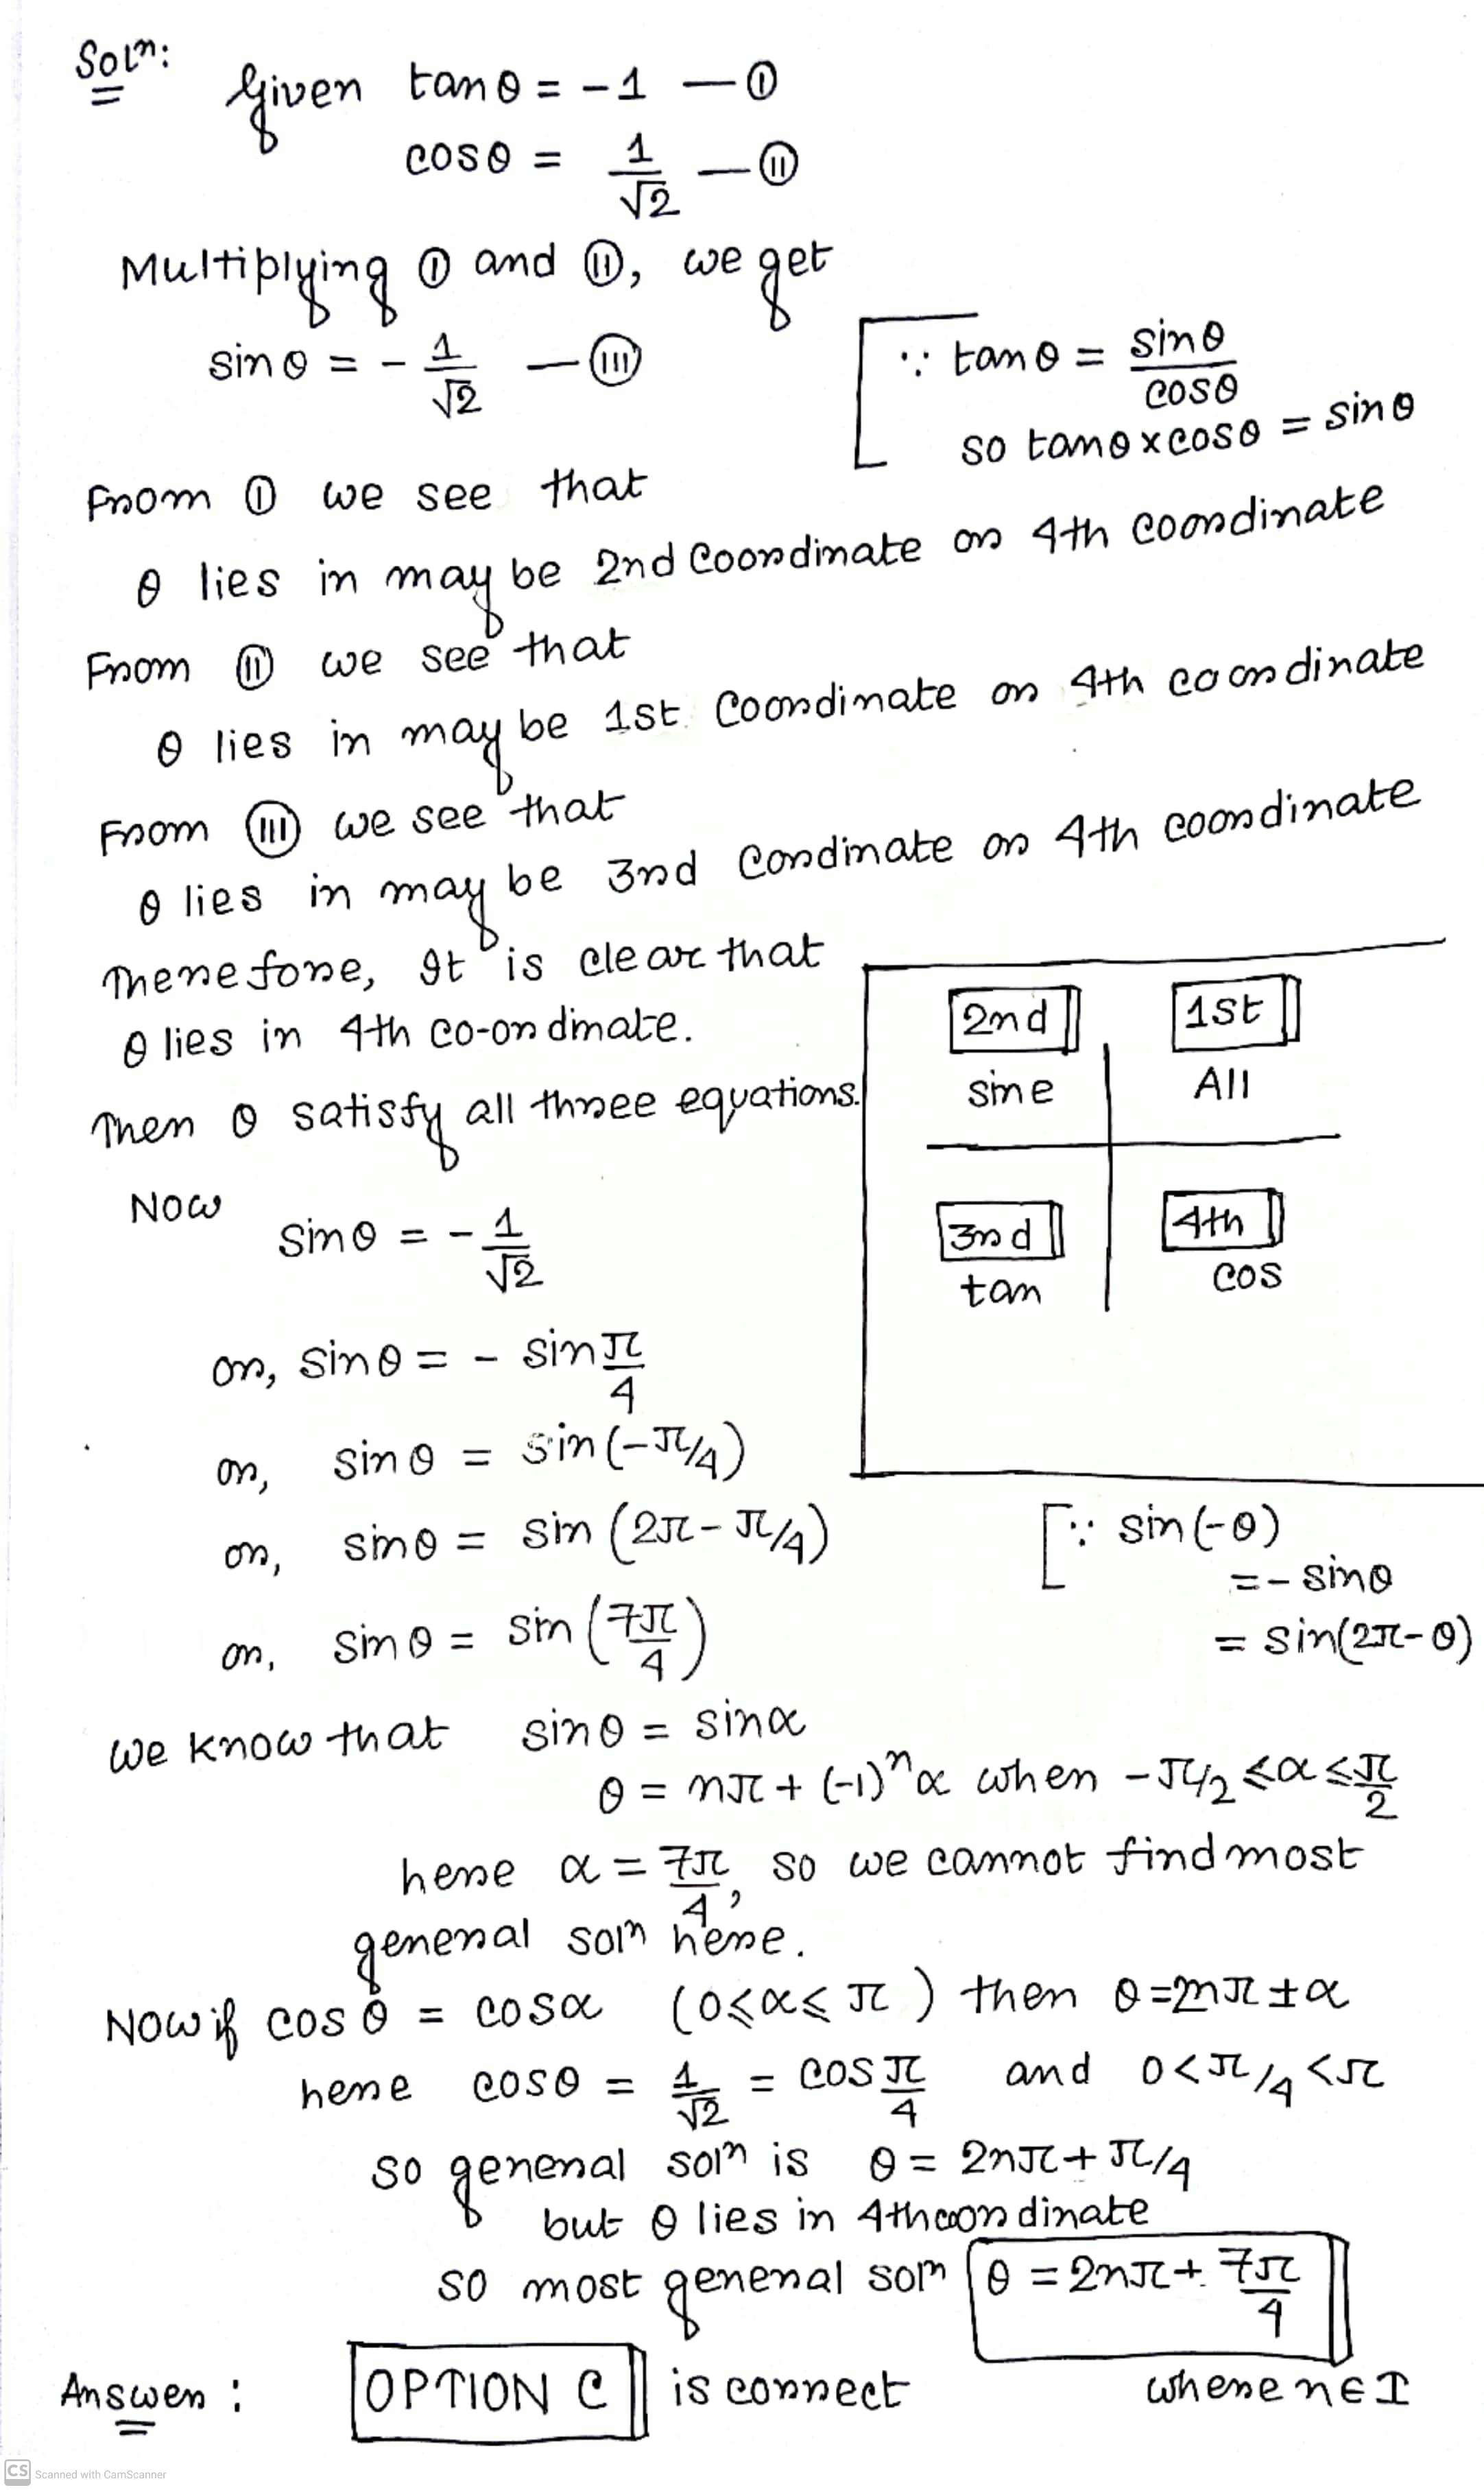 Solⁿ:
Given tanθ = -1 — ⓘ
cosθ = 1/√2 — ⓘⓘ
Multiplying ⓘ and ⓘⓘ, we get
sinθ = - 1/√2 — ⓘⓘⓘ
[∵ tanθ = sinθ/cosθ
so tanθ × cosθ = sinθ
From ⓘ we see that
θ lies in may be 2nd Coordinate or 4th coordinate
From ⓘⓘ we see that
θ lies in may be 1st Coordinate or 4th coordinate
From ⓘⓘⓘ we see that
θ lies in may be 3rd Cordinate or 4th coordinate
Therefore, It is clear that
θ lies in 4th co-ordinate.
Then θ satisfy all three equations.
2nd 1st
sine All
3rd 4th
tan cos
Now
sinθ = - 1/√2
or, sinθ = - sin π/4
or, sinθ = sin(-π/4)
or, sinθ = sin (2π - π/4)
or, sinθ = sin (7π/4)
[∵ sin(-θ)
= - sinθ
= sin(2π-θ)
we know that sinθ = sinα
θ = nπ + (-1)ⁿα when -π/2 ≤ α ≤ π/2
here α = 7π/4, so we cannot find most
general solⁿ here.
Now if cosθ = cosα (0≤α≤π) then θ = 2nπ ± α
here cosθ = 1/√2 = cos π/4 and 0 < π/4 < π
so general solⁿ is θ = 2nπ + π/4
but θ lies in 4th coordinate
so most general solⁿ θ = 2nπ + 7π/4
Answer : OPTION C is correct where n∈I
CS Scanned with CamScanner